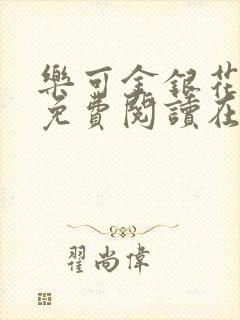 樂可金銀花
免費閱讀在
翟尚偉